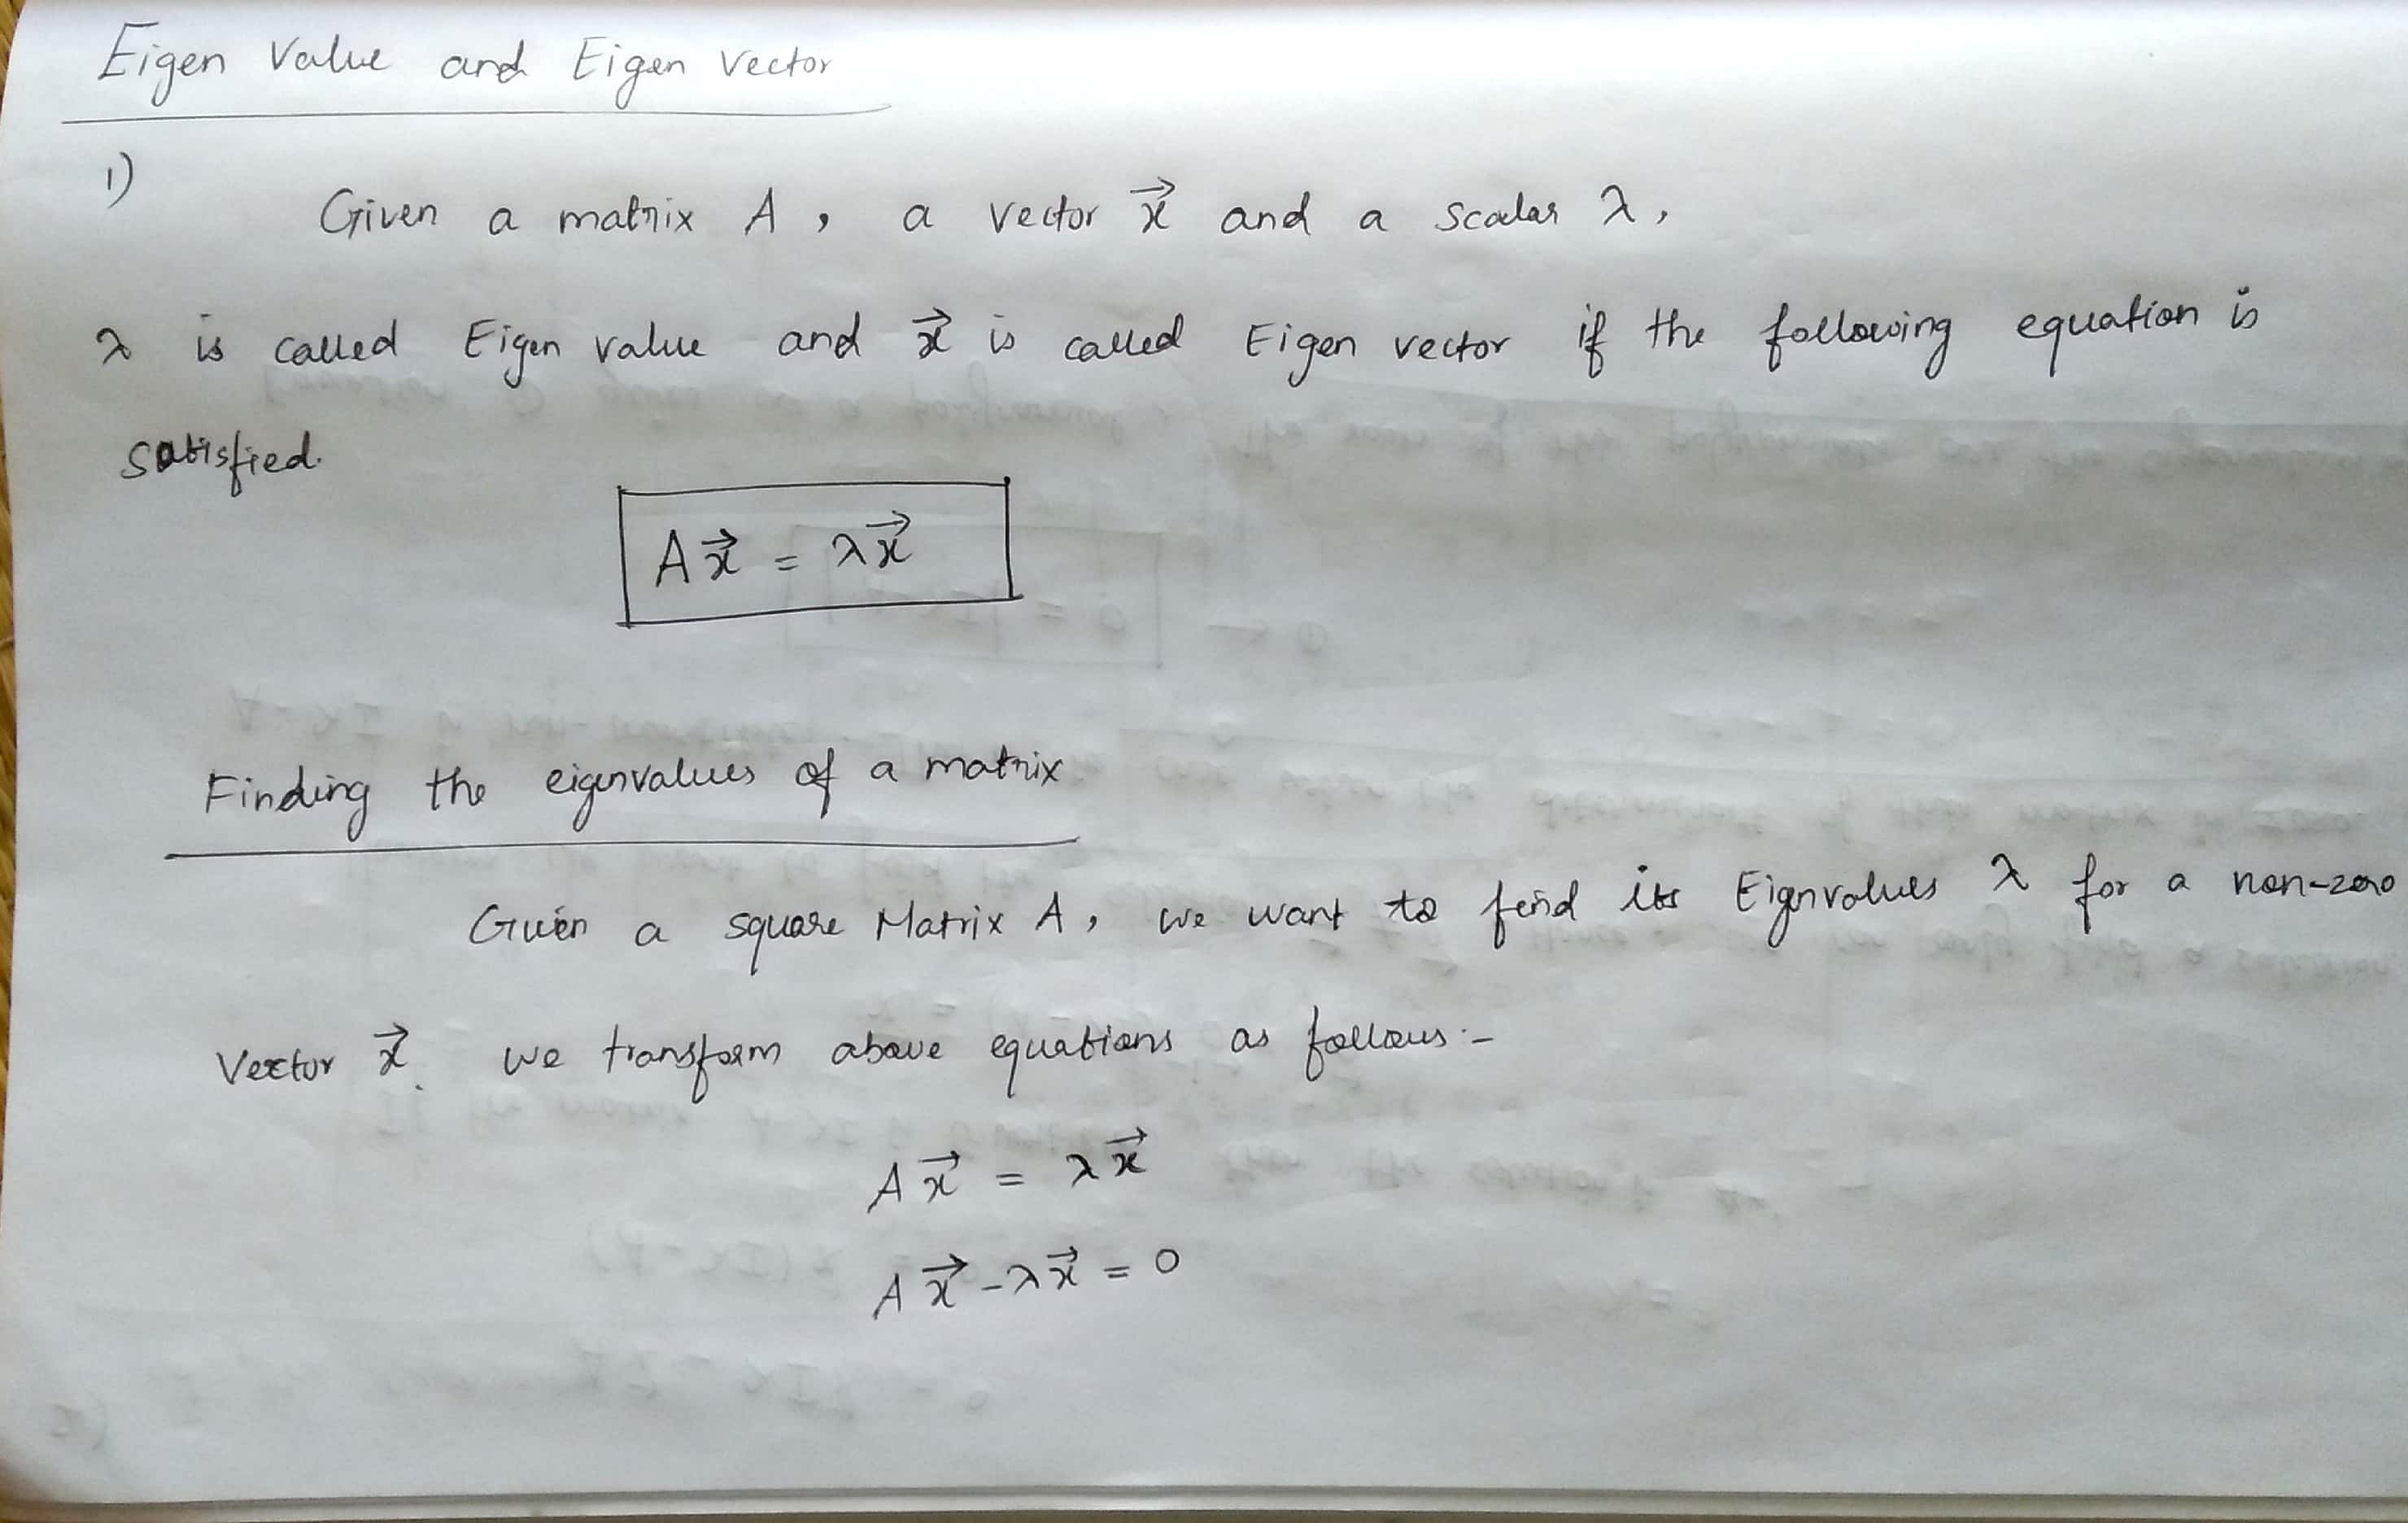 Eigen Value and Eigen Vector
1)
Given a matrix A, a vector x⃗ and a scalar λ,
λ is called Eigen value and x⃗ is called Eigen vector if the following equation is
satisfied.
Ax⃗ = λx⃗
Finding the eigenvalues of a matrix
Given a square Matrix A, we want to find its Eigenvalues λ for a non-zero
Vector x⃗. we transform above equations as follows:-
Ax⃗ = λx⃗
Ax⃗ - λx⃗ = 0